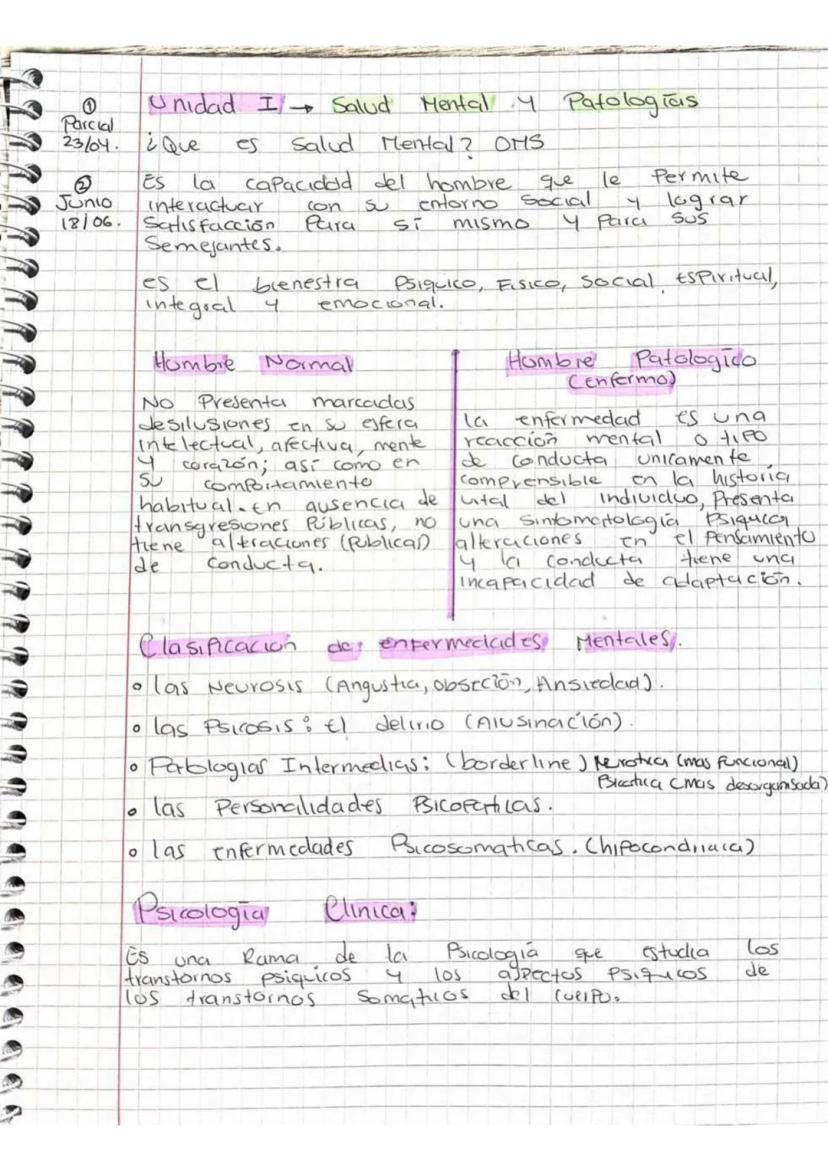 Unidad I → Salud Mental y Patologías
① Parcial 23/04.
¿Que es Salud Mental? OMS
② Junio 18/06.
Es la capacidad del hombre que le Permite
interactuar con su entorno Social y lograr
Satisfacción Para sí mismo y Para sus
Semejantes.
es el bienestra Psiquico, Fisico, Social, Espiritual,
integral y emocional.
Hombre Normal
No Presenta marcadas
desilusiones en su esfera
intelectual, afectiva, mente
y corazón; así como en
su comportamiento
habitual. En ausencia de
transgresiones Públicas, no
tiene altraciones (Publicas)
de conducta.
Hombre Patologico
(enfermo)
la enfermedad es una
reacción mental o tipo
de conducta unicamente
comprensible en la historia
vital del individuo, Presenta
una sintomatología Psiquica
alteraciones en el Pensamiento
y la conducta tiene una
incapacidad de adaptación.
Clasificación de enfermedades Mentales.
• las Neurosis (Angustia, obseción, Ansiedad).
• las Psicosis: El delirio (Alusinación).
• Patologias Intermedias: (borderline) Nerotica (mas funcional)
Psicotica (Mas desorganisada)
• las Personalidades Psicopaticas.
• las enfermedades Psicosomaticas. (hipocondriaca)
Psicología Clinica:
Es una Rama de la Psicología que estudia los
transtornos psiquicos y los aspectos psiquicos de
los transtornos Somaticos del Cuerpo.